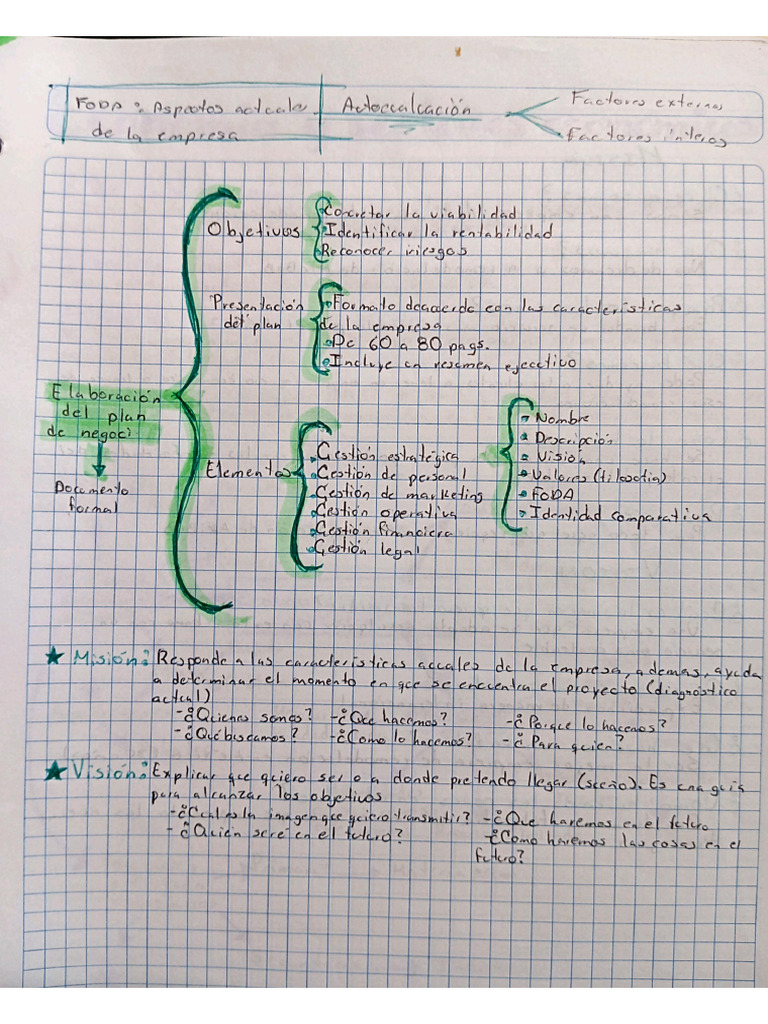 FODA: Aspectos actuales
de la empresa
Autoevaluación
Factores externos
Factores internos
Objetivos
Concretar la viabilidad
Identificar la rentabilidad
Reconocer riesgos
Presentación
del plan
Formato deacuerdo con las características
de la empresa
De 60 a 80 pags.
Incluye un resumen ejecutivo
Elaboración
del plan
de negoci
Documento
formal
Elementos
Gestión estratégica
Gestión de personal
Gestión de marketing
Gestión operativa
Gestión financiera
Gestión legal
Nombre
Descripción
Visión
Valores (filosofia)
FODA
Identidad comparativa
★ Misión: Responde a las características actuales de la empresa, ademas, ayuda
a determinar el momento en que se encuentra el proyecto (diagnóstico
actual)
- ¿Quienes somos? - ¿Que hacemos? - ¿Porque lo hacemos?
- ¿Qué buscamos? - ¿Como lo hacemos? - ¿Para quien?
★ Visión: Explicar que quiero ser o a donde pretendo llegar (sueño). Es una guia
para alcanzar los objetivos
- ¿Cual es la imagen que quiero transmitir? - ¿Que haremos en el futuro
- ¿Quién seré en el futuro? - ¿Como haremos las cosas en el
futuro?